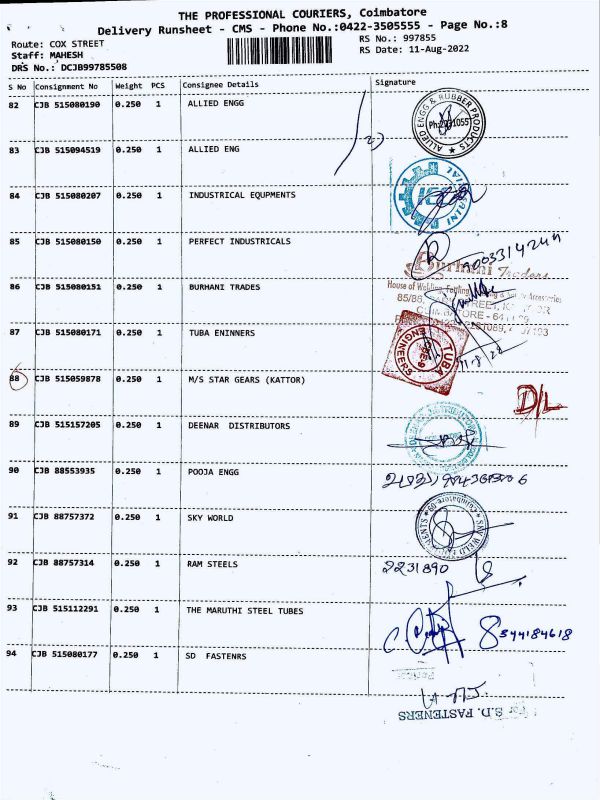 THE PROFESSIONAL COURIERS, Coimbatore
Delivery Runsheet - CMS - Phone No.:0422-3505555 - Page No.:8
Route: COX STREET
RS No.: 997855
Staff: MAHESH
RS Date: 11-Aug-2022
DRS No.: DCJB99785508
S No Consignment No Weight PCS Consignee Details Signature
82 CJB 515080190 0.250 1 ALLIED ENGG
ALLIED ENGG & RUBBER PRODUCTS
83 CJB 515094519 0.250 1 ALLIED ENG
84 CJB 515080207 0.250 1 INDUSTRICAL EQUPMENTS
85 CJB 515080150 0.250 1 PERFECT INDUSTRICALS
9003314249
86 CJB 515080151 0.250 1 BURHANI TRADES
Burhani Traders
House of Welding
87 CJB 515080171 0.250 1 TUBA ENINNERS
TUBA ENGINEERS
11/8/22
88 CJB 515059878 0.250 1 M/S STAR GEARS (KATTOR)
D/L
89 CJB 515157205 0.250 1 DEENAR DISTRIBUTORS
90 CJB 88553935 0.250 1 POOJA ENGG
91 CJB 88757372 0.250 1 SKY WORLD
92 CJB 88757314 0.250 1 RAM STEELS
2231890
93 CJB 515112291 0.250 1 THE MARUTHI STEEL TUBES
8344184618
94 CJB 515080177 0.250 1 SD FASTENRS
For S.D. FASTENERS